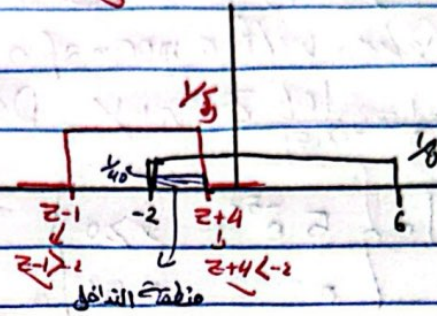 1/5
1/8
1/40
z-1 -2 z+4 6
z-1>-2 z+4<-2
منطقة التداخل